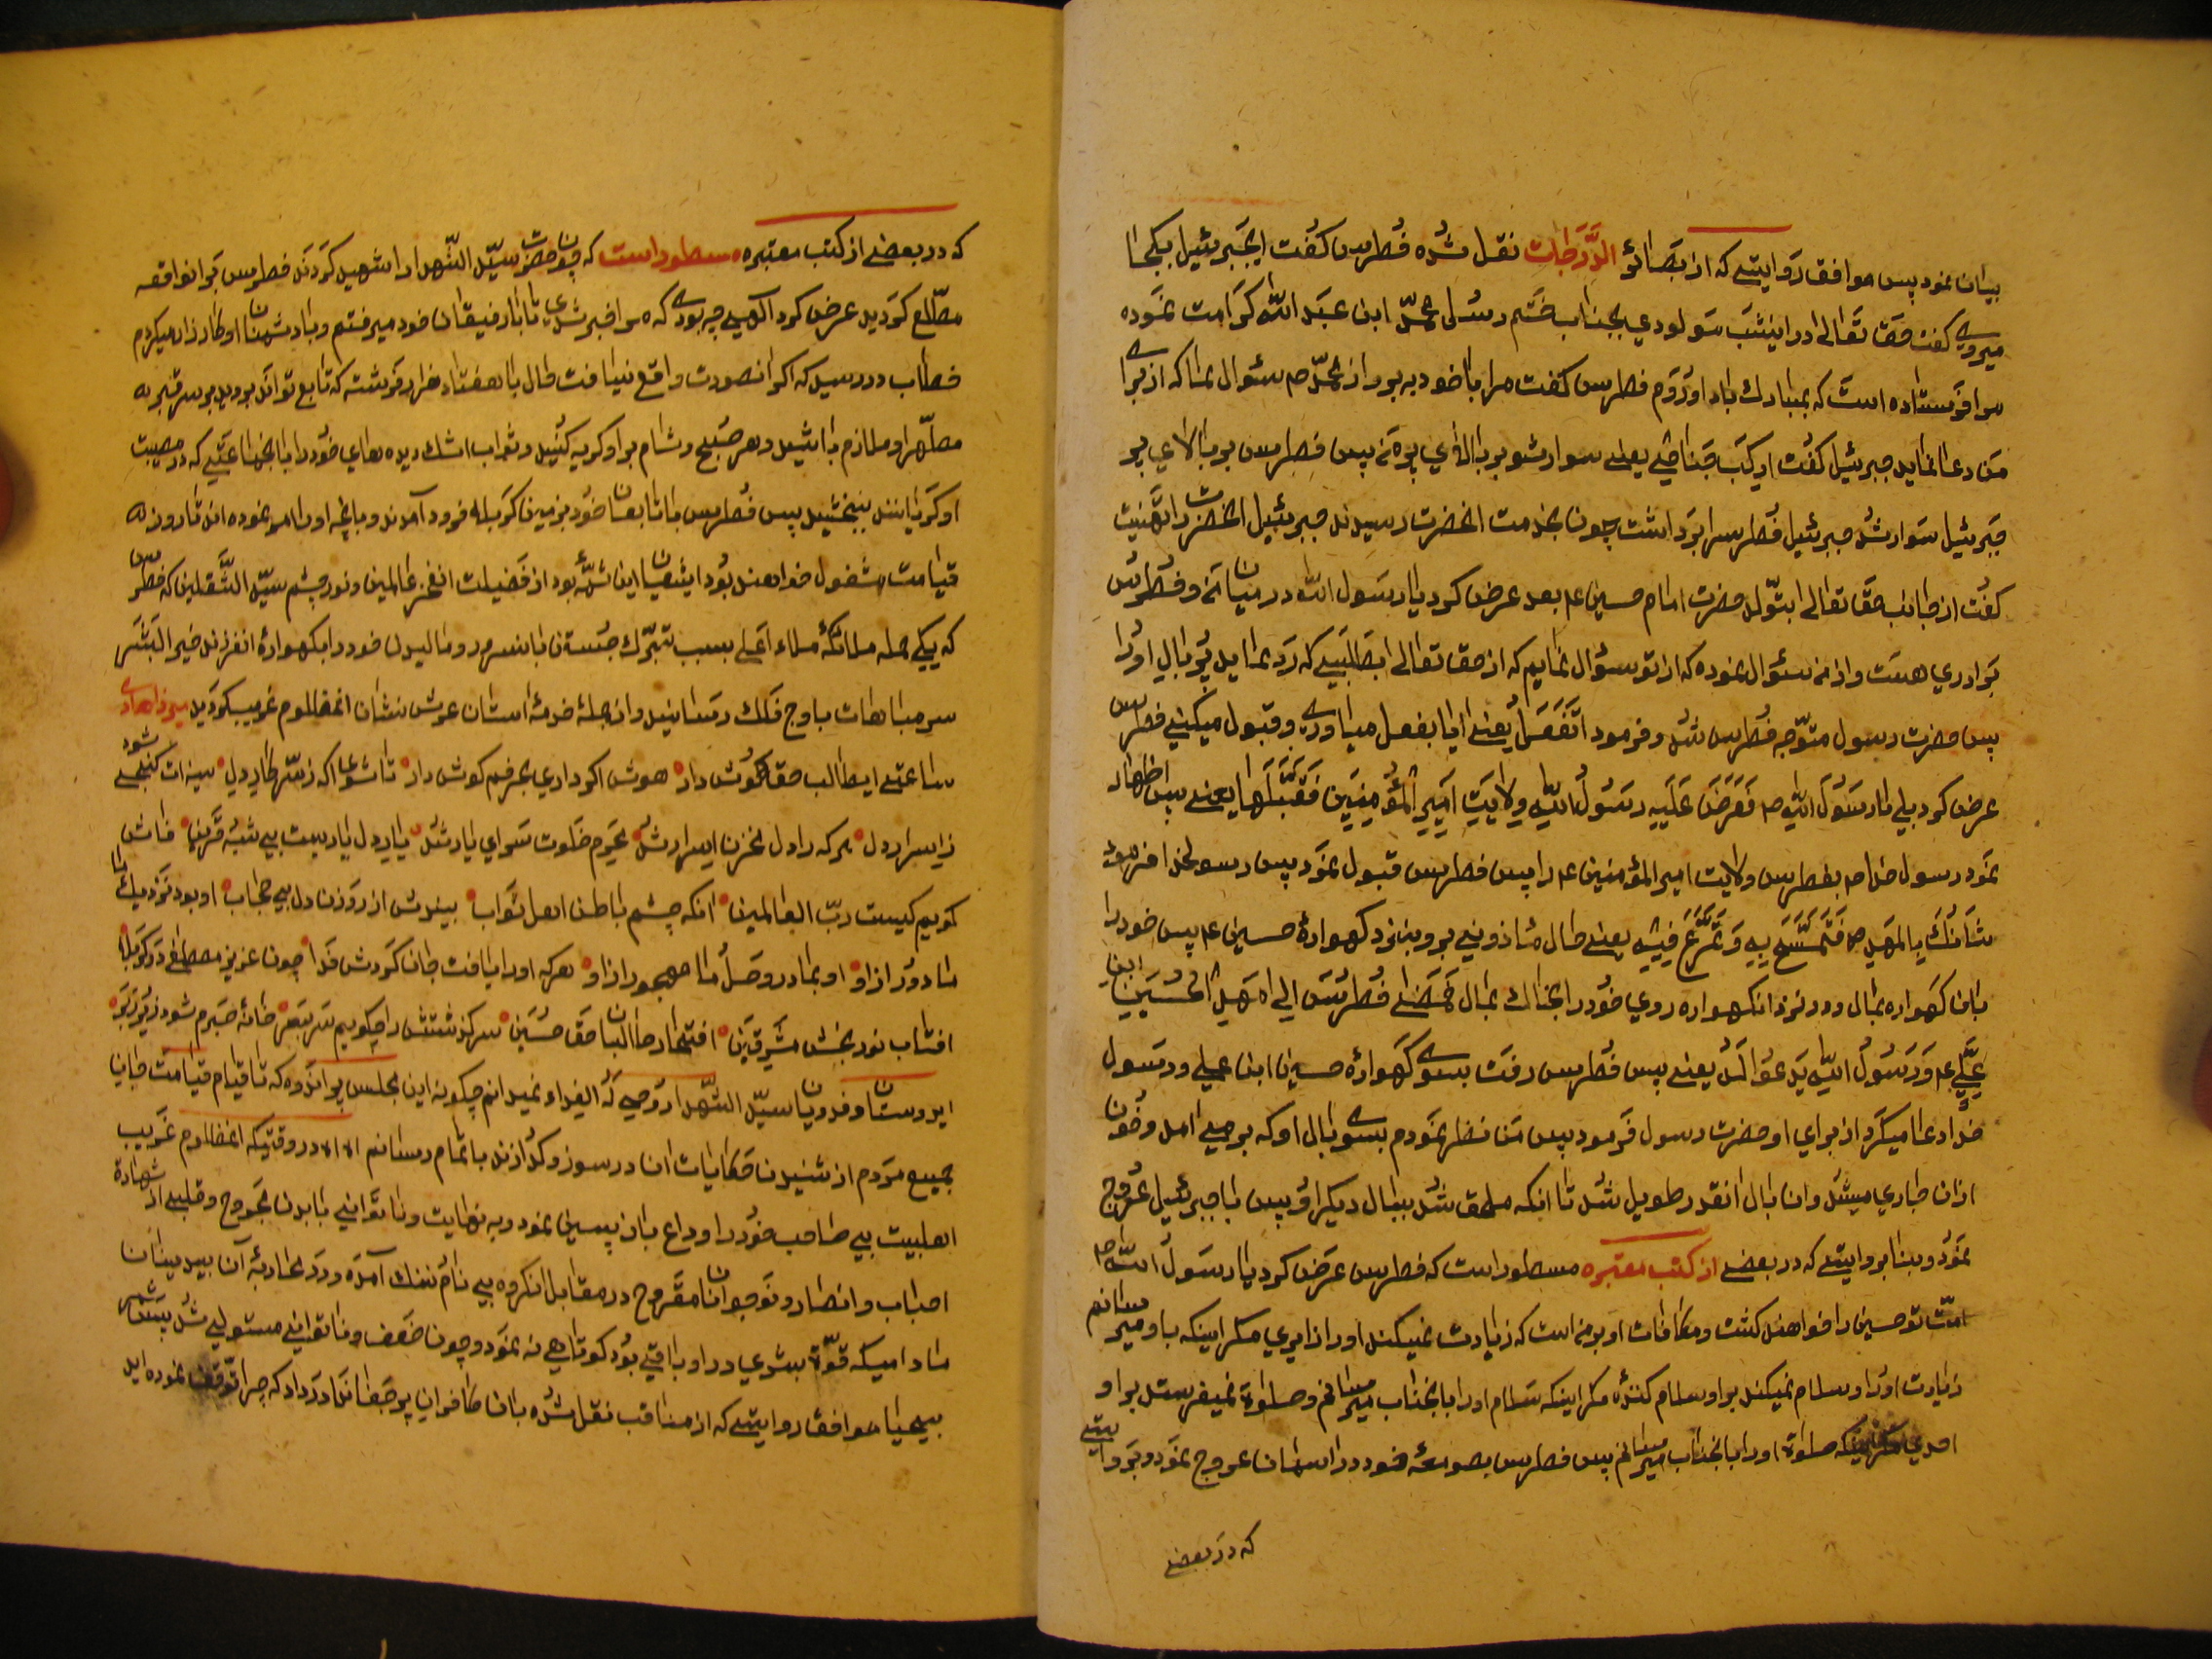 بیان نمود پس موافق روایتی که از بصائر الدرجات نقل شده فطرس گفت ایجبرئیل بکجا
میروی گفت حق تعالی در اینشب مولودی بجناب ختم رسل محمد ابن عبد الله کرامت نموده
مرا فرستاده است که بمبارک باد او روم فطرس گفت مرا با خود ببر و از محمد ص سئوال نما که از برای
من دعا نماید جبرئیل گفت ارکب جناحی یعنی سوار شو بر بالهای پر من پس فطرس بر بالای پر
جبرئیل سوار شد جبرئیل فطرس را برداشت چون بخدمت انحضرت رسیدند جبرئیل انحضرت را تهنیت
گفت از جانب حق تعالی بتولد حضرت امام حسین ع بعد عرض کرد یا رسول الله در میان من و فطرس
برادری هست و از من سئوال نموده که از تو سئوال نمایم که از حق تعالی بطلبی که رد نماید پر و بال او را
پس حضرت رسول متوجه فطرس شد و فرمود اتفعل یعنی ایا بفعل میاوری و قبول میکنی فطرس
عرض کرد بلی یا رسول الله ص فعرض علیه رسول الله ولایت امیر المؤمنین فقبلها یعنی پس اظهار
نمود رسول خدا ص بفطرس ولایت امیر المؤمنین ع را پس فطرس قبول نمود پس رسولخدا فرمود
شانک بالمهد فتمسح به و تمرغ فیه یعنی حال ماذونی برو بنزد گهوارهٔ حسین ع پس خود را
بان گهواره بمال و در نزد انگهواره روی خود را بخاک بمال فمضی فطرس الی مهد الحسین ابن
علی ع و رسول الله یدعو له یعنی پس فطرس رفت بسوی گهوارهٔ حسین ابن علی و رسول
خدا دعا میکرد از برای او حضرت رسول فرمود پس من نظر نمودم بسوی بال او که بر میامد و خون
ازان جاری میشد وان بال انقدر طویل شد تا انکه ملحق شد ببال دیگر او پس با جبرئیل عروج
نمود و بنا بر روایتی که در بعضی از کتب معتبره مسطور است که فطرس عرض کرد یا رسول الله ص
امت تو حسین را خواهند کشت و مکافات او بر من است که زیارت نمیکند او را زایری مگر اینکه باو میرسانم
زیارت او را و سلام نمیکند بر او سلام کننده مگر اینکه سلام او را بانجناب میرسانم و صلوة نمیفرستد بر او
احدی مگر اینکه صلوة او را بانجناب میرسانم پس فطرس بصومعه خود در اسمان عروج نمود و بروایتی
که در بعضی
که در بعضی از کتب معتبره مسطور است که چون حضرت سید الشهدا را شهید کردند فطرس بر انواقعه
مطلع گردید عرض کرد الهی چه بودی که مرا خبر شدی تا با رفیقان خود میرفتم و با دشمنان او کارزار میکردم
خطاب در رسید که اگر انصورت واقع نیافت حال با هفتاد هزار فرشته که تابع تو اند بروید بر سر قبر
مطهر او ملازم باشید و هر صبح و شام بر او گریه کنید و ثواب اشک دیده های خود را بانجماعتی که در مصیبت
او گریانند ببخشید پس فطرس با تابعان خود بزمین کربلا فرود آمدند و بانچه او را امر نموده اند تا روز
قیامت مشغول خواهند بود ایشیعیان این شمهٔ بود از فضیلت انفخر عالمین و نور چشم سید الثقلین که فطرس
که یکی از جمله ملائکهٔ ملاء اعلی بسبب تبرک جستن بانسرور و مالیدن خود را بگهوارهٔ انفرزند خیر البشر
سر مباهات باوج فلک رسانید و از جملهٔ خدمهٔ استان عرش نشان انمظلوم غریب گردید
ساعتی ایطالب حق گوش دار هوش اگر داری بحرفم گوش دار تا شوی اگه ز سر کار دل سینه ات گنجی شود
ز اسرار دل هر که را دل مخزن اسرار شد محرم خلوت سرای یار شد یار دل یار ست بی شبه قرین فاش
گویم کیست رب العالمین انکه چشم باطن اهل ثواب بیندش از روزن دل بی حجاب او بود نزدیک با
ما دور از او او بما در وصل ما مهجور از او هر که او را یافت جان کردش فدا چون عزیز مصطفی در کربلا
افتاب نور بخش مشرقین افتخار طالبان حق حسین سرگذشتش را چگویم سر بسر خامهٔ صبرم شود زیر و زبر
ایدوستان و فدویان سید الشهدا روحی له الفدا نمیدانم چگونه این مجلس پر اندوه که تا قیام قیامت جان
جمیع مردم از شنیدن حکایات ان در سوز و گداز ند باتمام رسانم الا در وقتیکه انمظلوم غریب
اهلبیت بی صاحب خود را وداع باز پسین نمود و به نهایت و ناتوانی با بدن مجروح و قلبی از شهادة
احباب و انصار و نوجوانان مقروح در مقابل انگروه بی نام و ننگ آمده و در محاربهٔ آن بیدینان
مادامیکه قوة بشری در او باقی بود کوتاهی نه نمود و چون ضعف و ناتوانی مستولی شد پس شمر
بیحیا موافق روایتی که از مناقب نقل شده بان کافران پر جفا ندا در داد که چرا توقف نموده اید